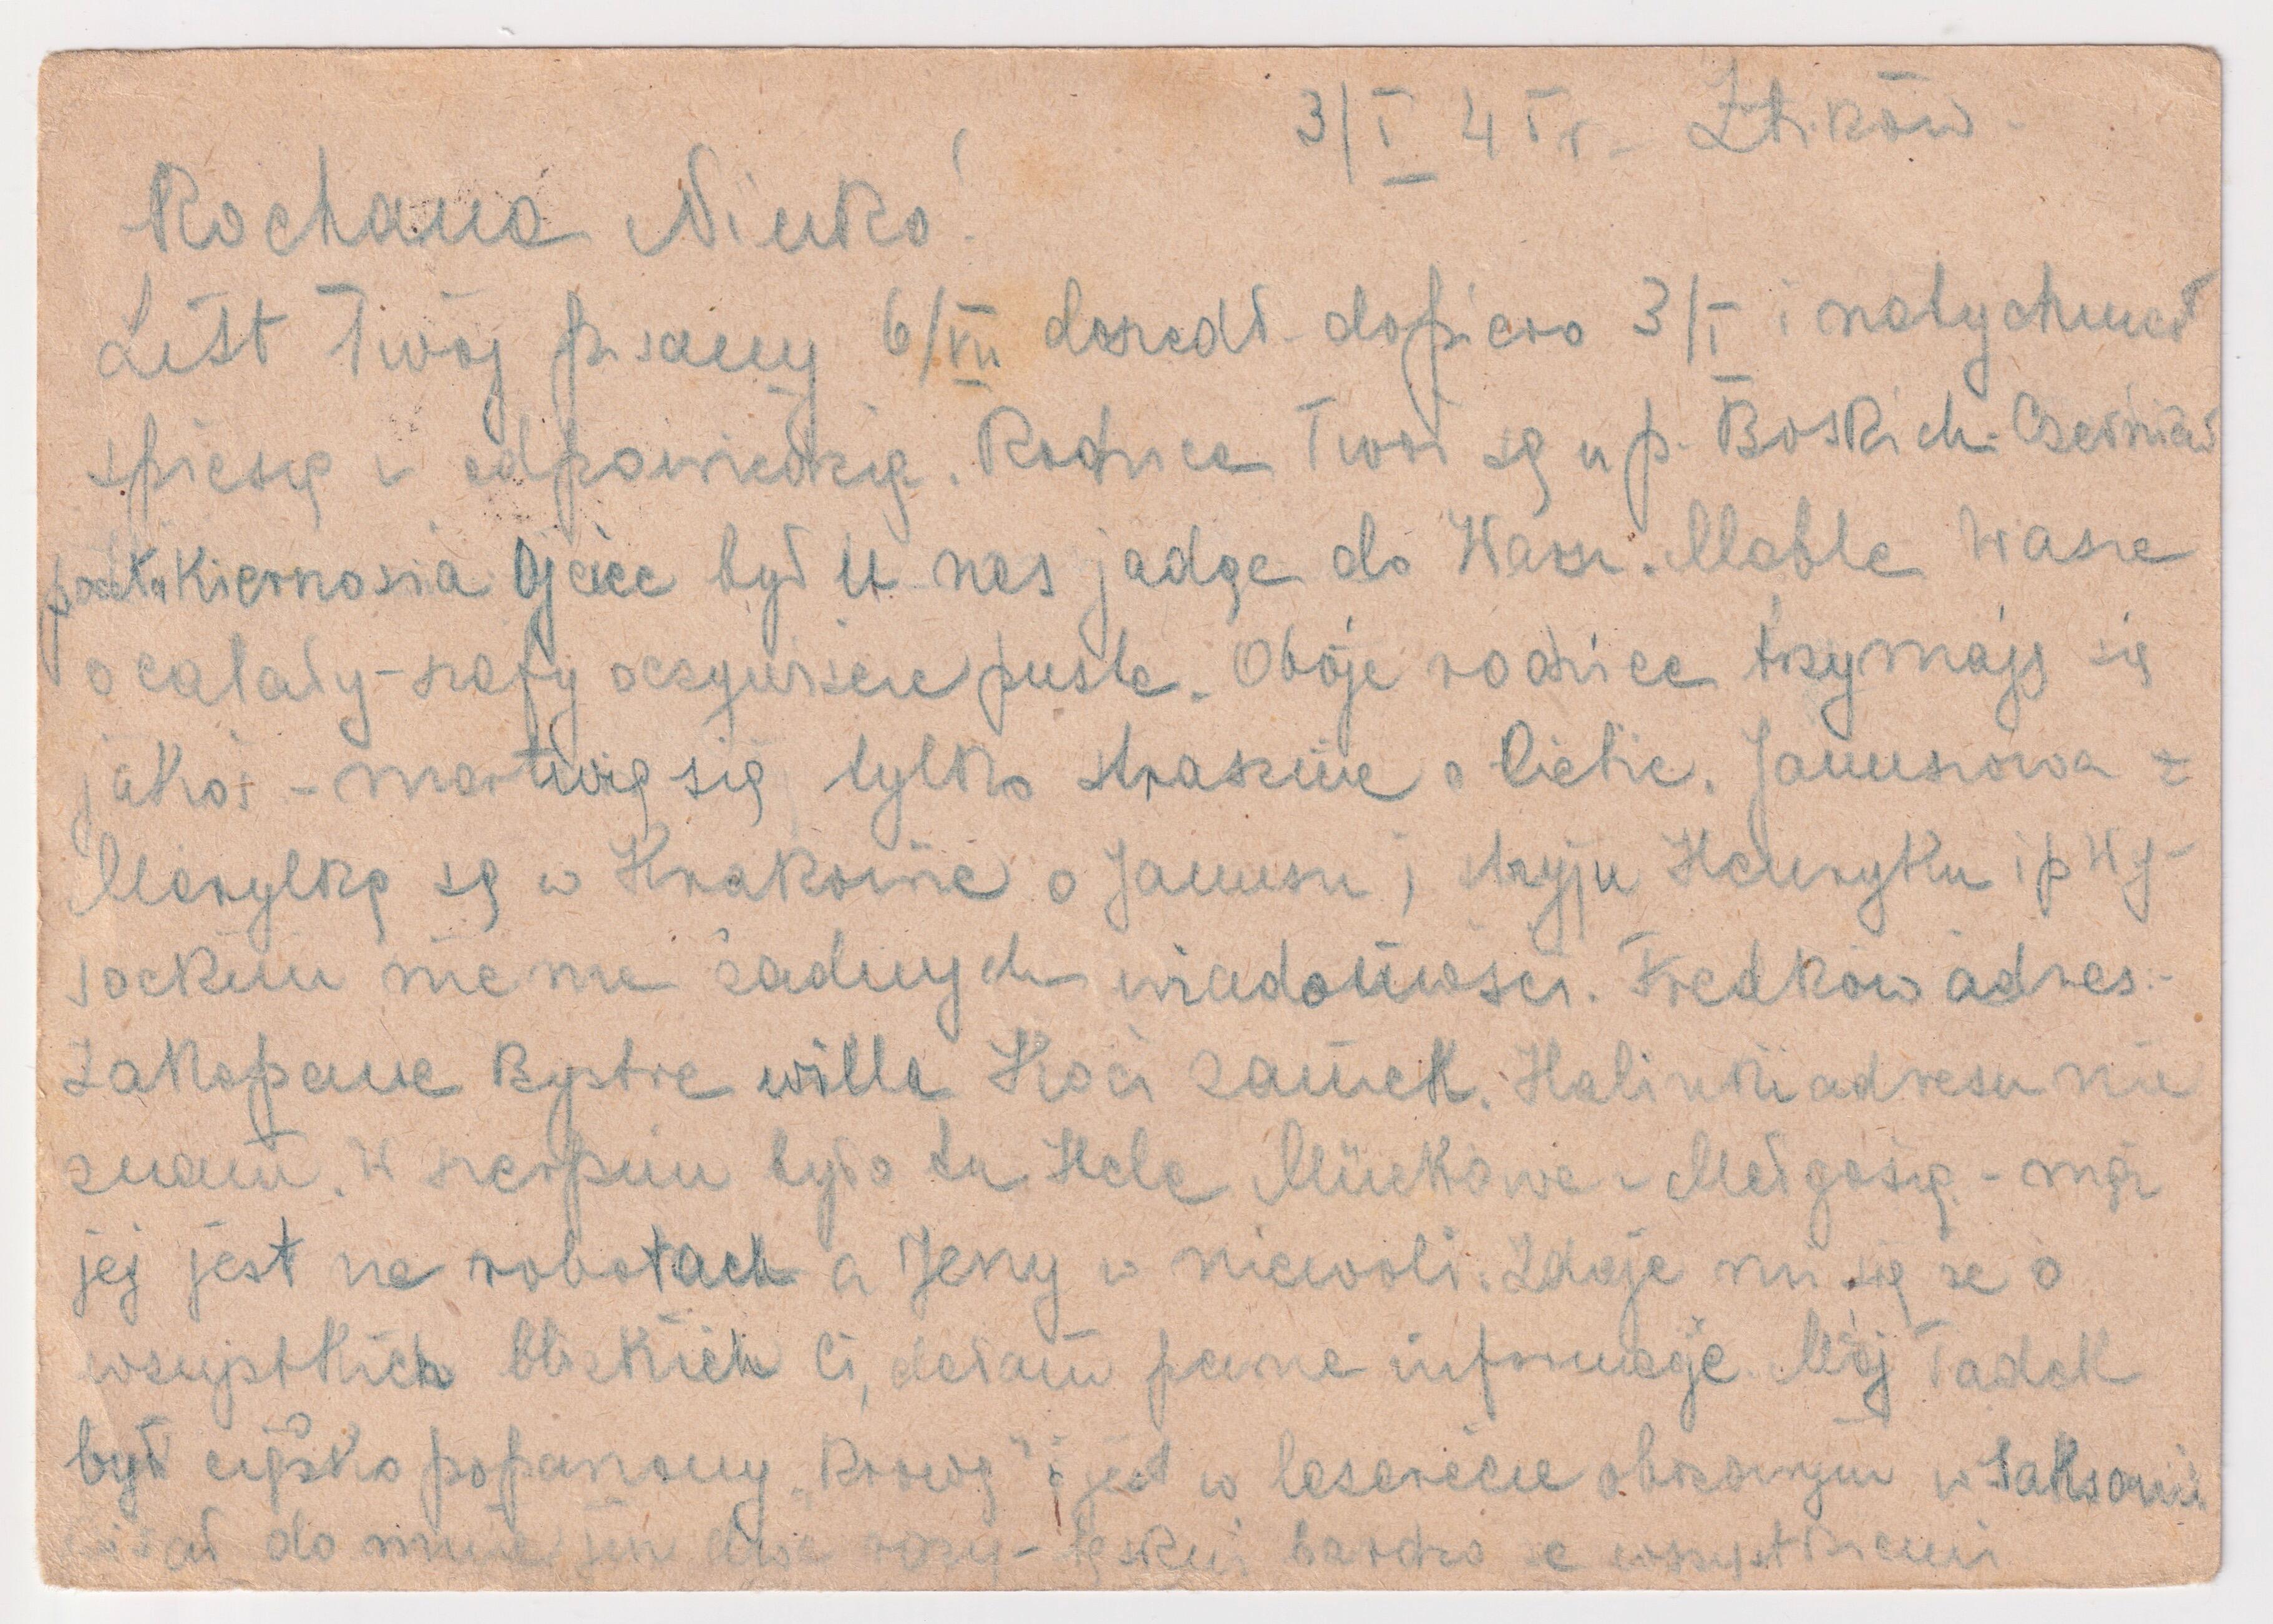 3/I 45 r. Żbików.
Kochana Ninko!
List Twój pisany 6/XII doszedł dopiero 3/I i natychmiast
spieszę z odpowiedzią. Rodzice Twoi są u p. Boskich Czerników
poczta Kiernozia Ojciec był u nas jadąc do Warsz. Meble Wasze
ocalały - szafy oczywiście puste. Oboje rodzice trzymają się
jakoś - martwią się tylko strasznie o Ciebie. Januszowa z
Marylką są w Krakowie o Januszu, stryju Henryku i p Wy-
sockim nie ma żadnych wiadomości. Fredków adres -
Zakopane Bystre willa Koci zamek. Halinki adresu nie
znam. W sierpniu była tu Hela z Małgosią - mąż
jej jest na robotach a Jerzy w niewoli. Zdaje mi się że o
wszystkich bliskich Ci, dałam pewne informacje. Mój Tadek
był ciężko poparzony „krową" i jest w lazarecie obozowym w Saksonii
pisał do mnie już dwa razy - tęskni bardzo ze wszystkiemi